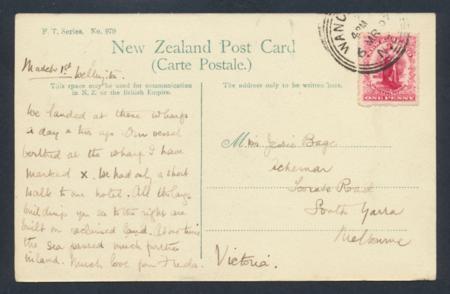 F. T. Series. No. 979
New Zealand Post Card
(Carte Postale.)
March 1st Wellington.
This space may be used for communication
in N.Z. or the British Empire.
The address only to be written here.
We landed at these wharfs
a day or two ago. Our vessel
berthed at the wharf I have
marked X. We had only a short
walk to our hotel. All the large
buildings you see to the right are
built on reclaimed land. At one time
the sea passed much further
inland. Much love from Freda.
Miss Jessie Bage
Road
South Yarra
Melbourne
Victoria.
WANG
4 PM
MR
N.Z
ONE PENNY